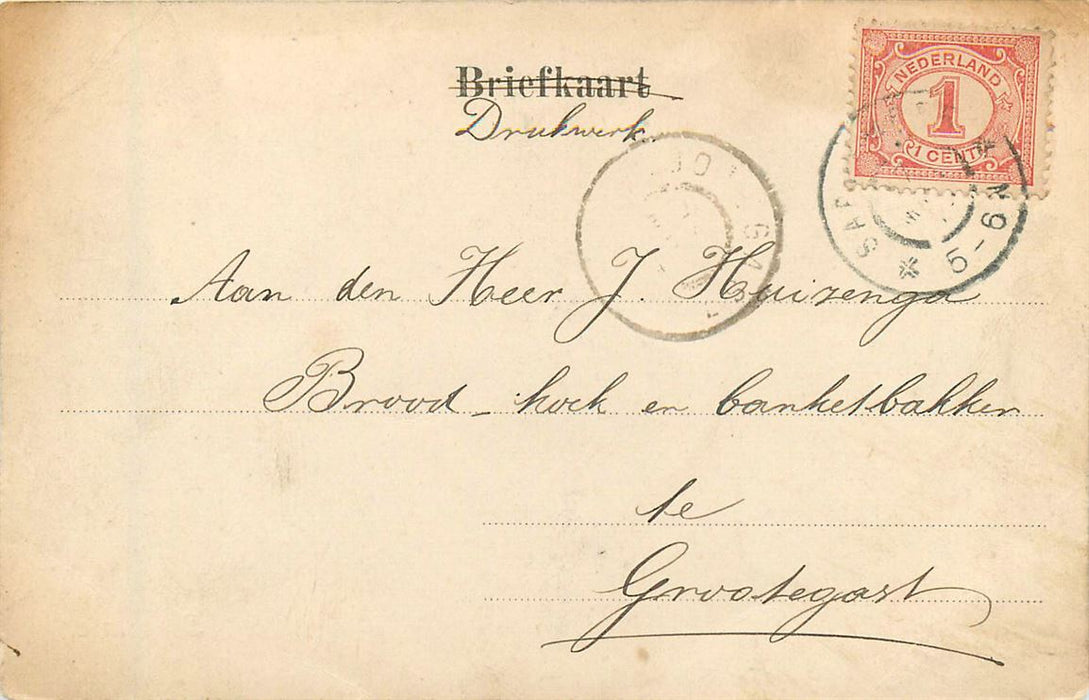 Briefkaart
Drukwerk.
NEDERLAND
1
1 CENT
5-6N
Aan den Heer J. Huizenga
Brood- koek en banketbakker
te
Grootegast